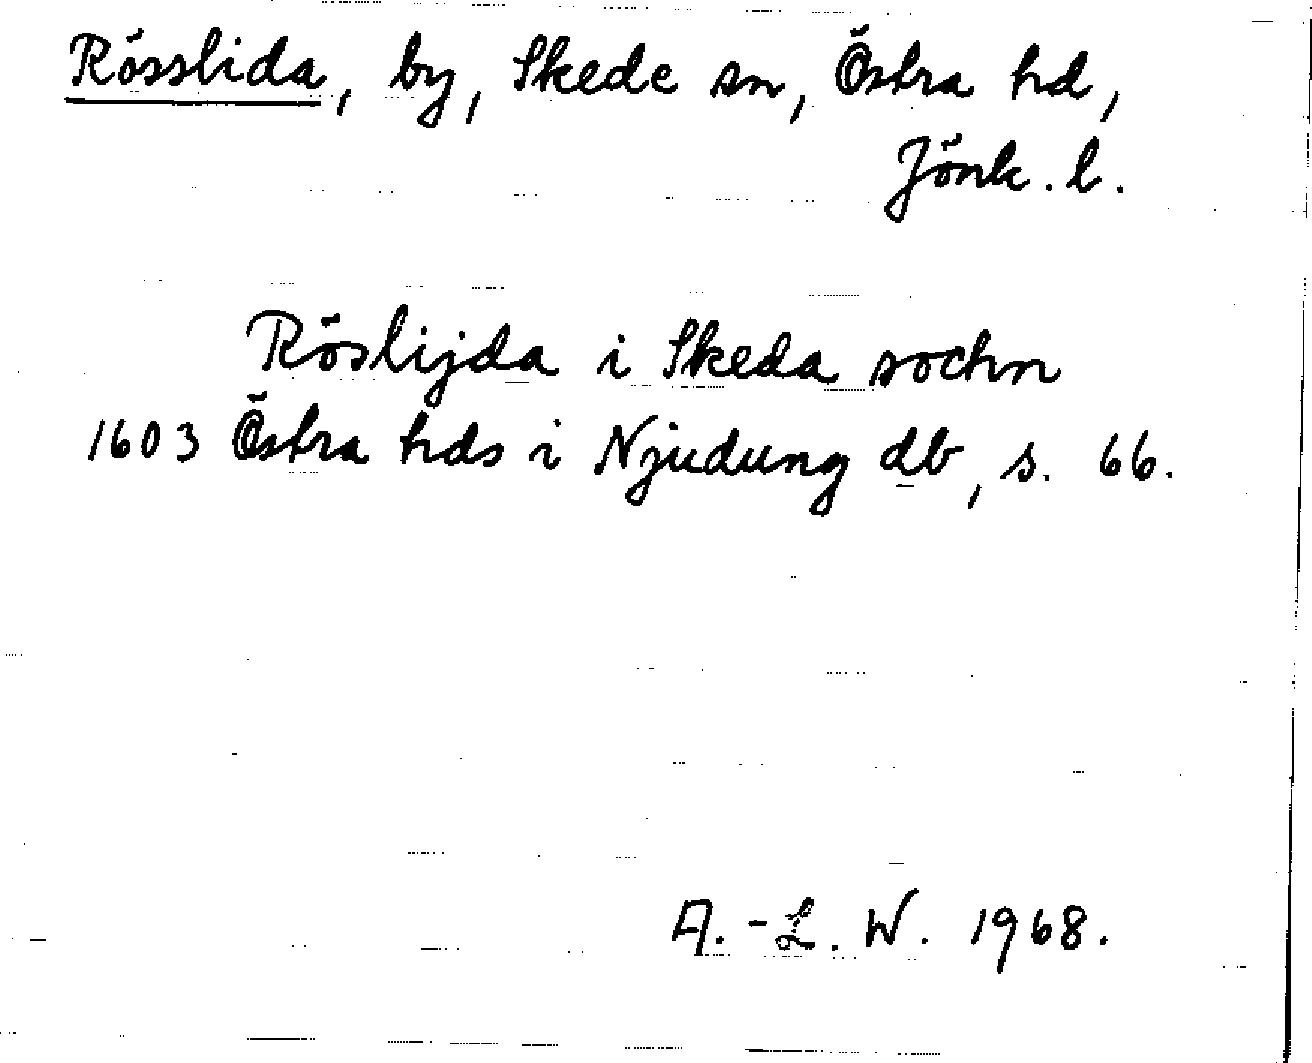 Rösslida, by, Skede sn, Östra hd,
Jönk. l.
Röslijda i Skeda sochn
1603 Östra hds i Njudung db, s. 66.
A.-L. W. 1968.